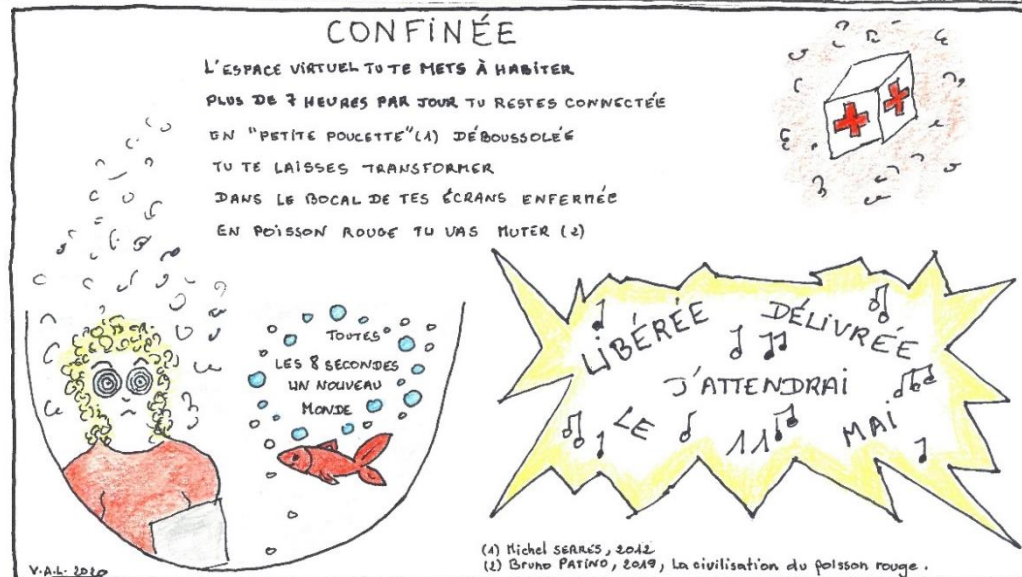 CONFINÉE
L'ESPACE VIRTUEL TU TE METS À HABITER
PLUS DE 7 HEURES PAR JOUR TU RESTES CONNECTÉE
EN "PETITE POUCETTE" (1) DÉBOUSSOLÉE
TU TE LAISSES TRANSFORMER
DANS LE BOCAL DE TES ÉCRANS ENFERMÉE
EN POISSON ROUGE TU VAS MUTER (2)
TOUTES
LES 8 SECONDES
UN NOUVEAU
MONDE
LIBÉRÉE DÉLIVRÉE
J'ATTENDRAI
LE 11 MAI
(1) Michel SERRES, 2012
(2) Bruno PATINO, 2019, La civilisation du poisson rouge.
V.A.L. 2020